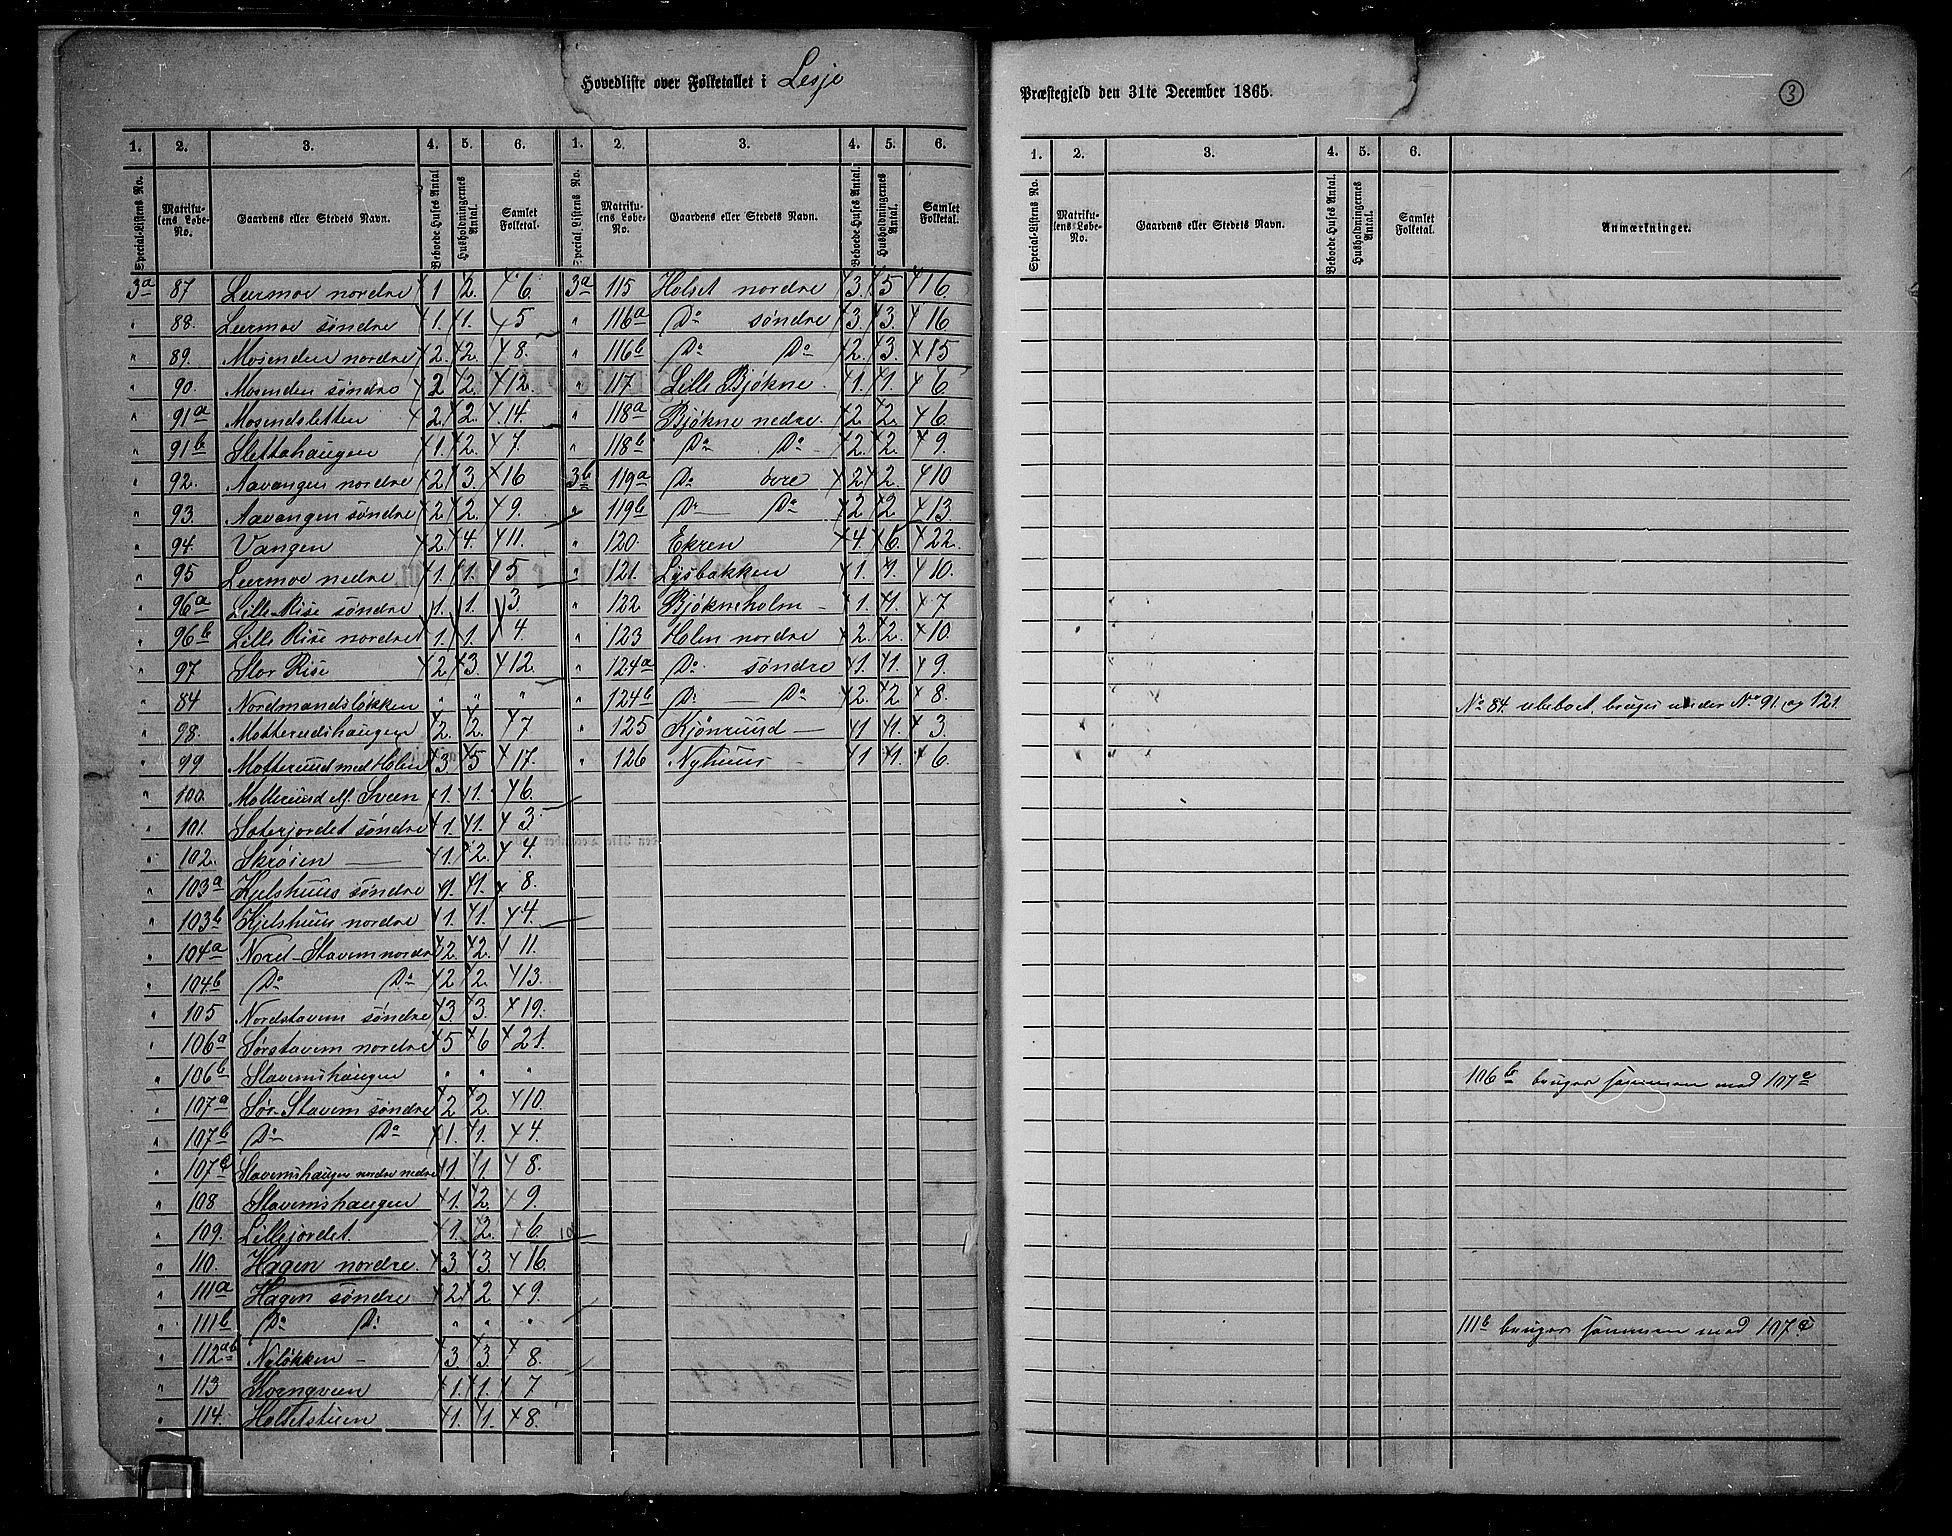 Hovedliste over Folketallet i Lesje
Præstegjeld den 31te December 1865.
3
1. 2. 3. 4. 5. 6. 1. 2. 3. 4. 5. 6.
Special-Listens No. Matrikulens Løbe-No. Gaardens eller Stedets Navn. Beboede Huses Antal. Husholdningernes Antal. Samlet Folketal. Special Listens No. Matrikulens Løbe-No. Gaardens eller Stedets Navn. Beboede Huses Antal. Husholdningernes Antal. Samlet Folketal.
3a 87 Leermoe nordre 1 2. 6.
" 88. Leermoe søndre 1. 1. 5
" 89. Mosenden nordre 2. 2. 8.
" 90. Mosenden søndre 2 2. 12.
" 91a Mosendsletten 2. 2. 14.
" 91b Slettahaugen 1. 2. 7.
" 92. Aavangen nordre 2 3. 16
" 93. Aavangen søndre 2. 2. 9.
" 94. Vangen 2. 4. 11.
" 95 Leermoe nedre 1. 1. 5
" 96a Lille Rise søndre 1. 1. 3.
" 96b Lille Rise nordre 1. 1. 4.
" 97 Stor Rise 2 3. 12.
" 84 Nordmandsløkken " " "
" 98. Motterudshaugen 2. 2. 7
" 99 Motteruud med Holen 3. 5 17.
" 100. Motteruud Sveen 1. 1. 6.
" 101. Sæterjordet søndre 1. 1. 3.
" 102. Skrøien 1. 2. 4.
" 103a Kjelshuus søndre 1. 1. 8.
" 103b Kjelshuus nordre 1. 1. 4.
" 104a Nord-Stavem nordre 2. 2. 11.
" 104b Do Do 2 2. 13.
" 105 Nordstavem søndre 3. 3. 19.
" 106a Sørstavem nordre 5 6 21.
" 106b Stavemshaugen " " "
" 107a Sør-Stavem søndre 2 2. 10.
" 107b Do Do 1. 1. 4.
" 107c Stavemshaugen nordre nedre 1 1. 8.
" 108 Stavemshaugen 1. 2. 9.
" 109. Lillejordet 1. 2. 6. 10
" 110. Hagen nordre. 3. 3. 16.
" 111a Hagen søndre 2. 2. 9.
" 111b Do Do " " "
" 112ab Nyløkken 3. 3. 8.
" 113 Korngveen 1. 1. 7
" 114. Holsetstuen 1. 1. 8.
3a 115 Holset nordre 3. 5 16.
" 116a Do søndre 3. 3. 16
" 116b Do Do 2. 3. 15
" 117 Lille Bjøkne 1. 1. 6
" 118a Bjøkne nedre 2 2. 6.
" 118b Do Do 2. 2. 9.
3b 119a Do øvre 2 2. 10
" 119b Do Do 2 2 13
" 120 Ekren 4. 6. 22.
" 121. Lysbakken 1. 1. 10.
" 122 Bjøkneholm 1. 1. 7
" 123 Holm nordre 2. 2. 10.
" 124a Do søndre 1. 1. 9.
" 124b Do Do 2. 2 8.
" 125 Kjønruud 1 1. 3.
" 126 Nyhuus 1 1. 6.
1. 2. 3. 4. 5. 6.
Special-Listens No. Matrikulens Løbe-No. Gaardens eller Stedets Navn. Beboede Huses Antal. Husholdningernes Antal. Samlet Folketal. Anmærkninger.
No 84. ubeboet, bruges under No 91. og 121.
106b bruges sammen med 107a
111b bruges sammen med 107c